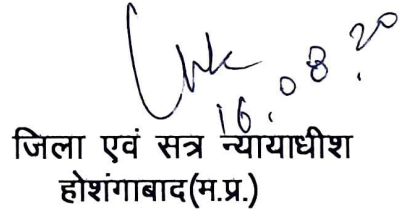 16.08.20
जिला एवं सत्र न्यायाधीश
होशंगाबाद(म.प्र.)